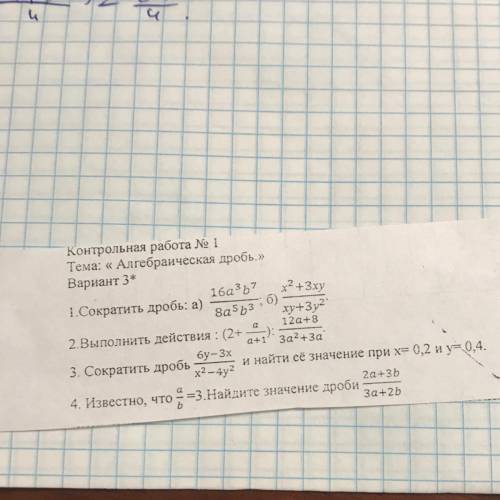 4 4 .
Контрольная работа № 1
Тема: « Алгебраическая дробь.»
Вариант 3*
1.Сократить дробь: а) 16a³b⁷/8a⁵b³; б) x²+3xy/xy+3y².
2.Выполнить действия : (2+ a/a+1): 12a+8/3a²+3a.
3. Сократить дробь 6y−3x/x²−4y² и найти её значение при x= 0,2 и y= 0,4.
4. Известно, что a/b=3.Найдите значение дроби 2a+3b/3a+2b